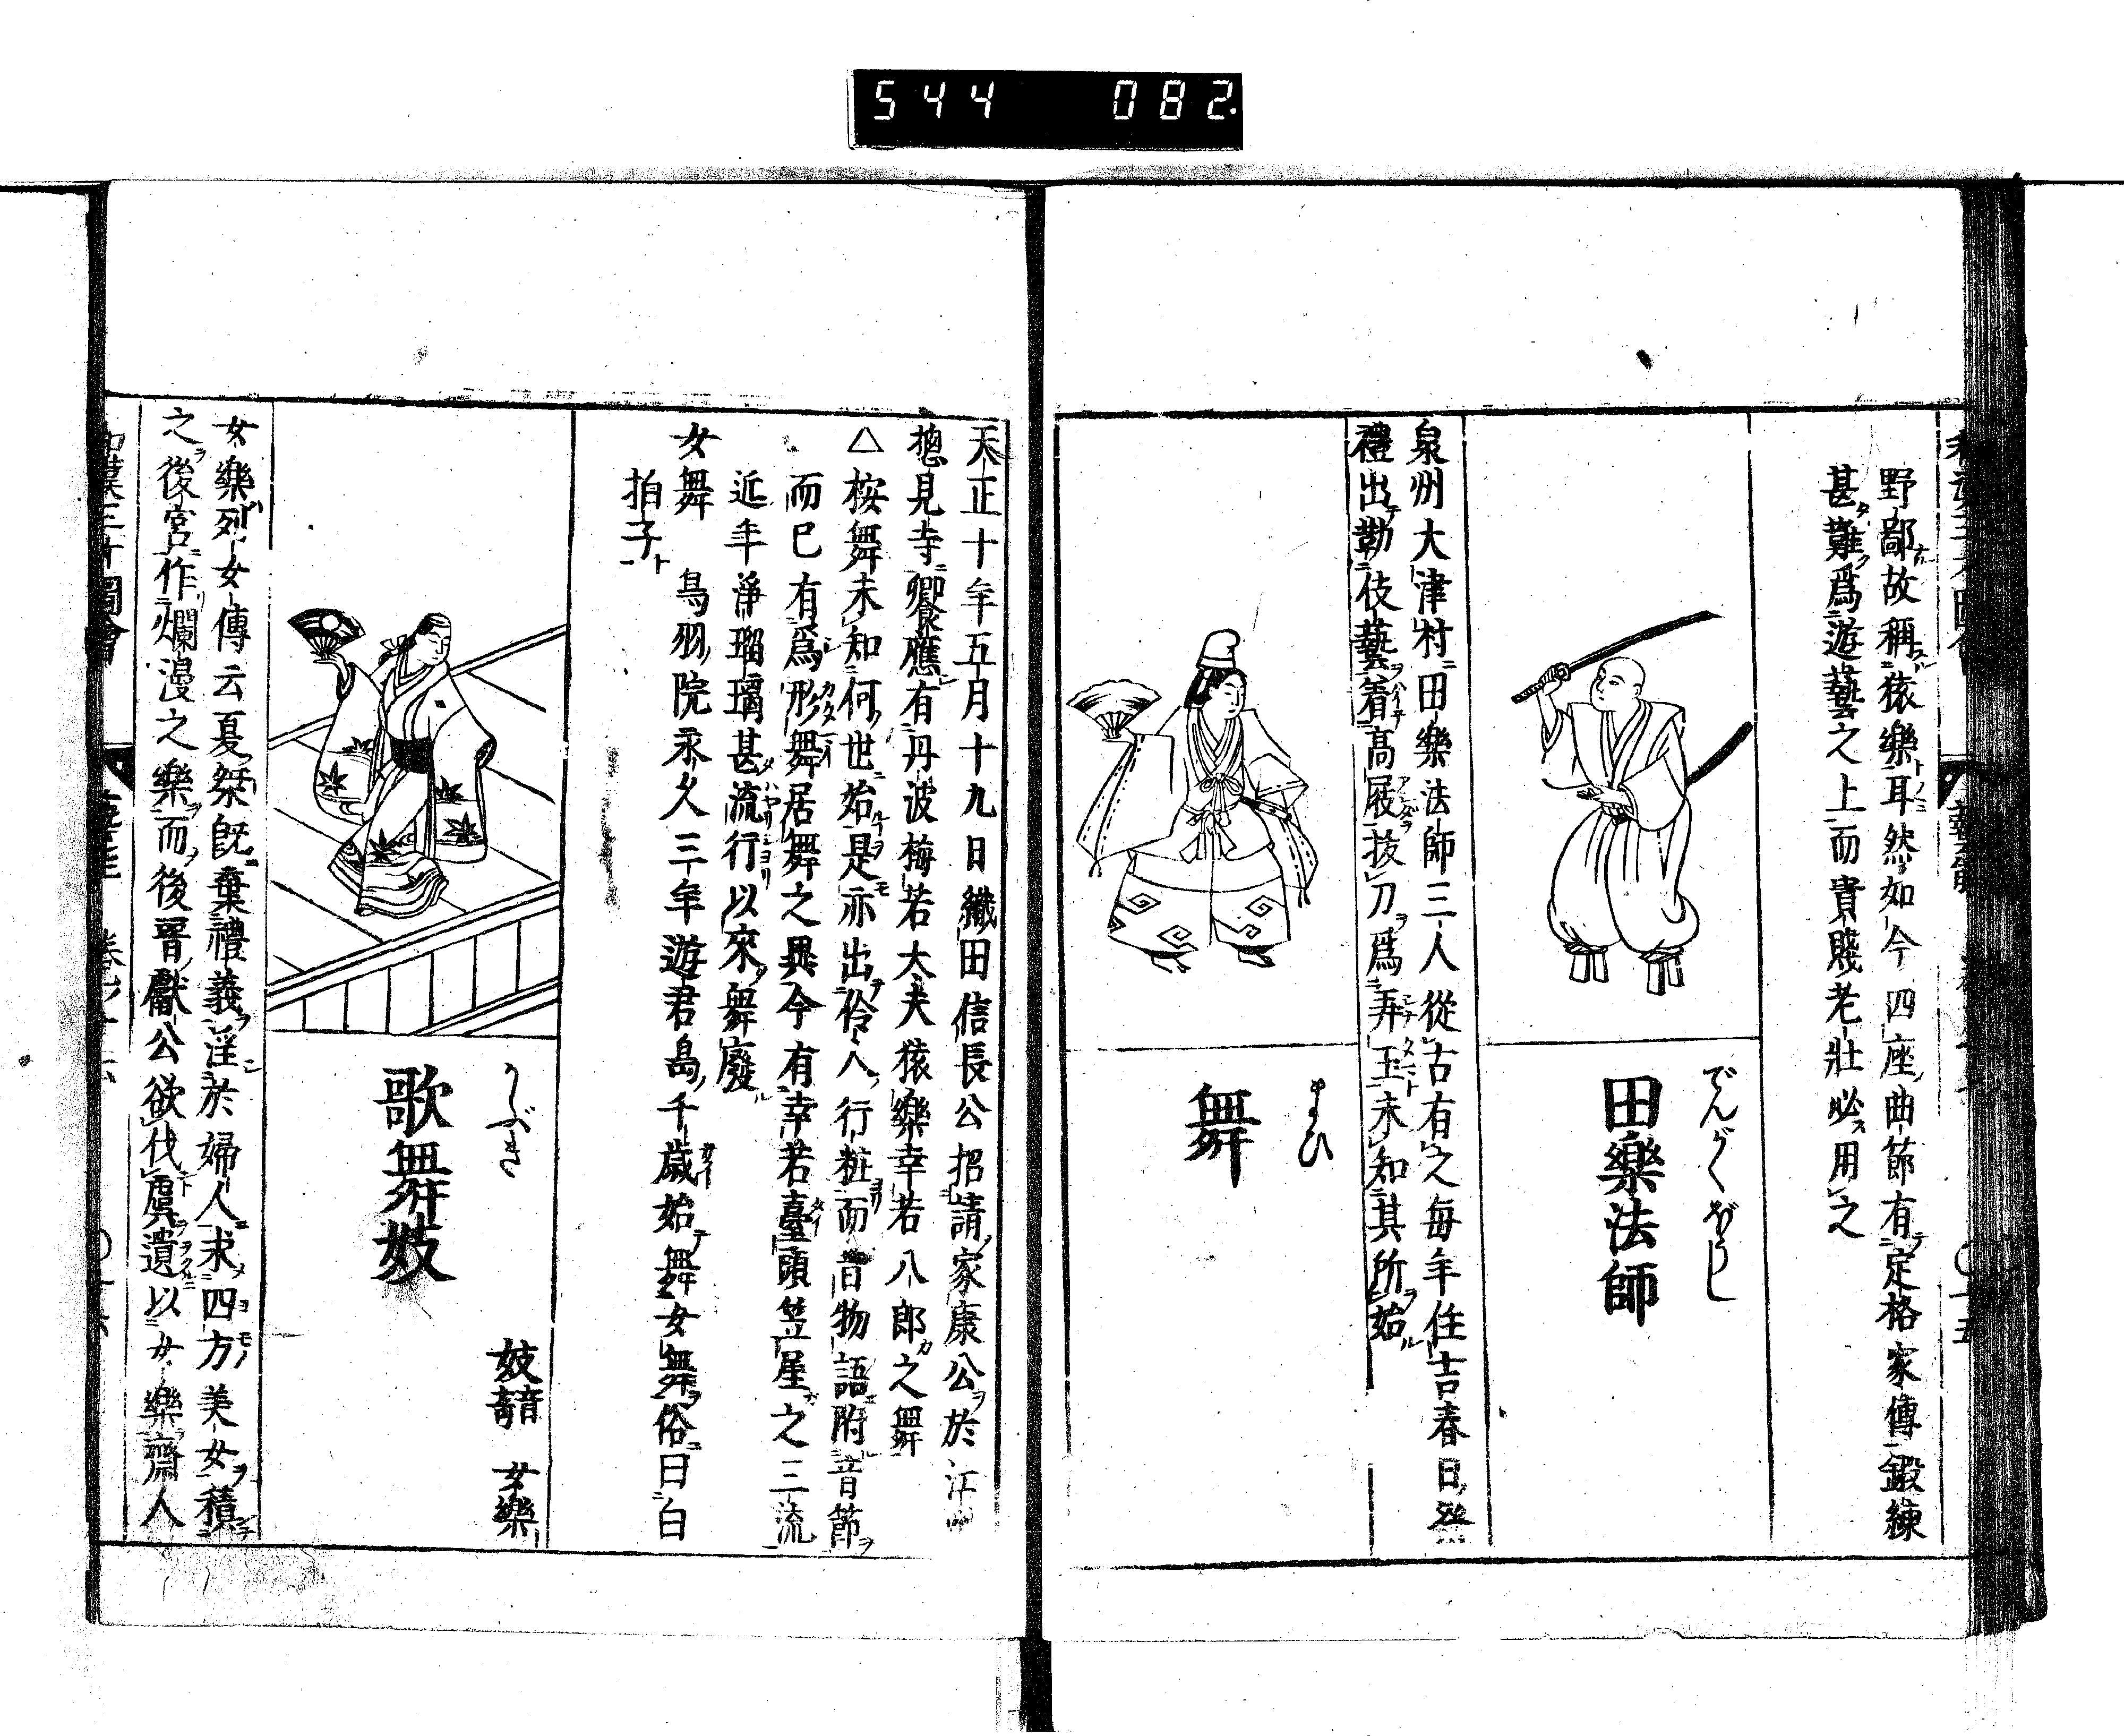 544 082
野鄙故稱猿樂耳然如今四座曲節有定格家傳鍛練
甚難爲遊藝之上而貴賤老壯必用之
でんがくほうし
田樂法師
泉州大津村田樂法師三人從古有之每年住吉春日祭
禮出勤伎藝着高屐拔刀爲弄玉未知其所始
まひ
舞
天正十年五月十九日織田信長公招請家康公於江
摠見寺饗應有丹波梅若大夫猿樂幸若八郎之舞
△按舞未知何世始是亦出伶人行粧而昔物語附音節
而已有爲形舞居舞之異今有幸若臺頭笠屋之三流
近年淨瑠璃甚流行以來舞廢
女舞 鳥羽院永久三年遊君島千歲始舞女舞俗曰白
拍子
かぶき
歌舞妓
妓 女樂
女樂列女傳云夏桀旣棄禮義淫於婦人求四方美女積
之後宮作爛漫之樂而後晋獻公欲伐虞遺以女樂齊人
和漢三才圖會